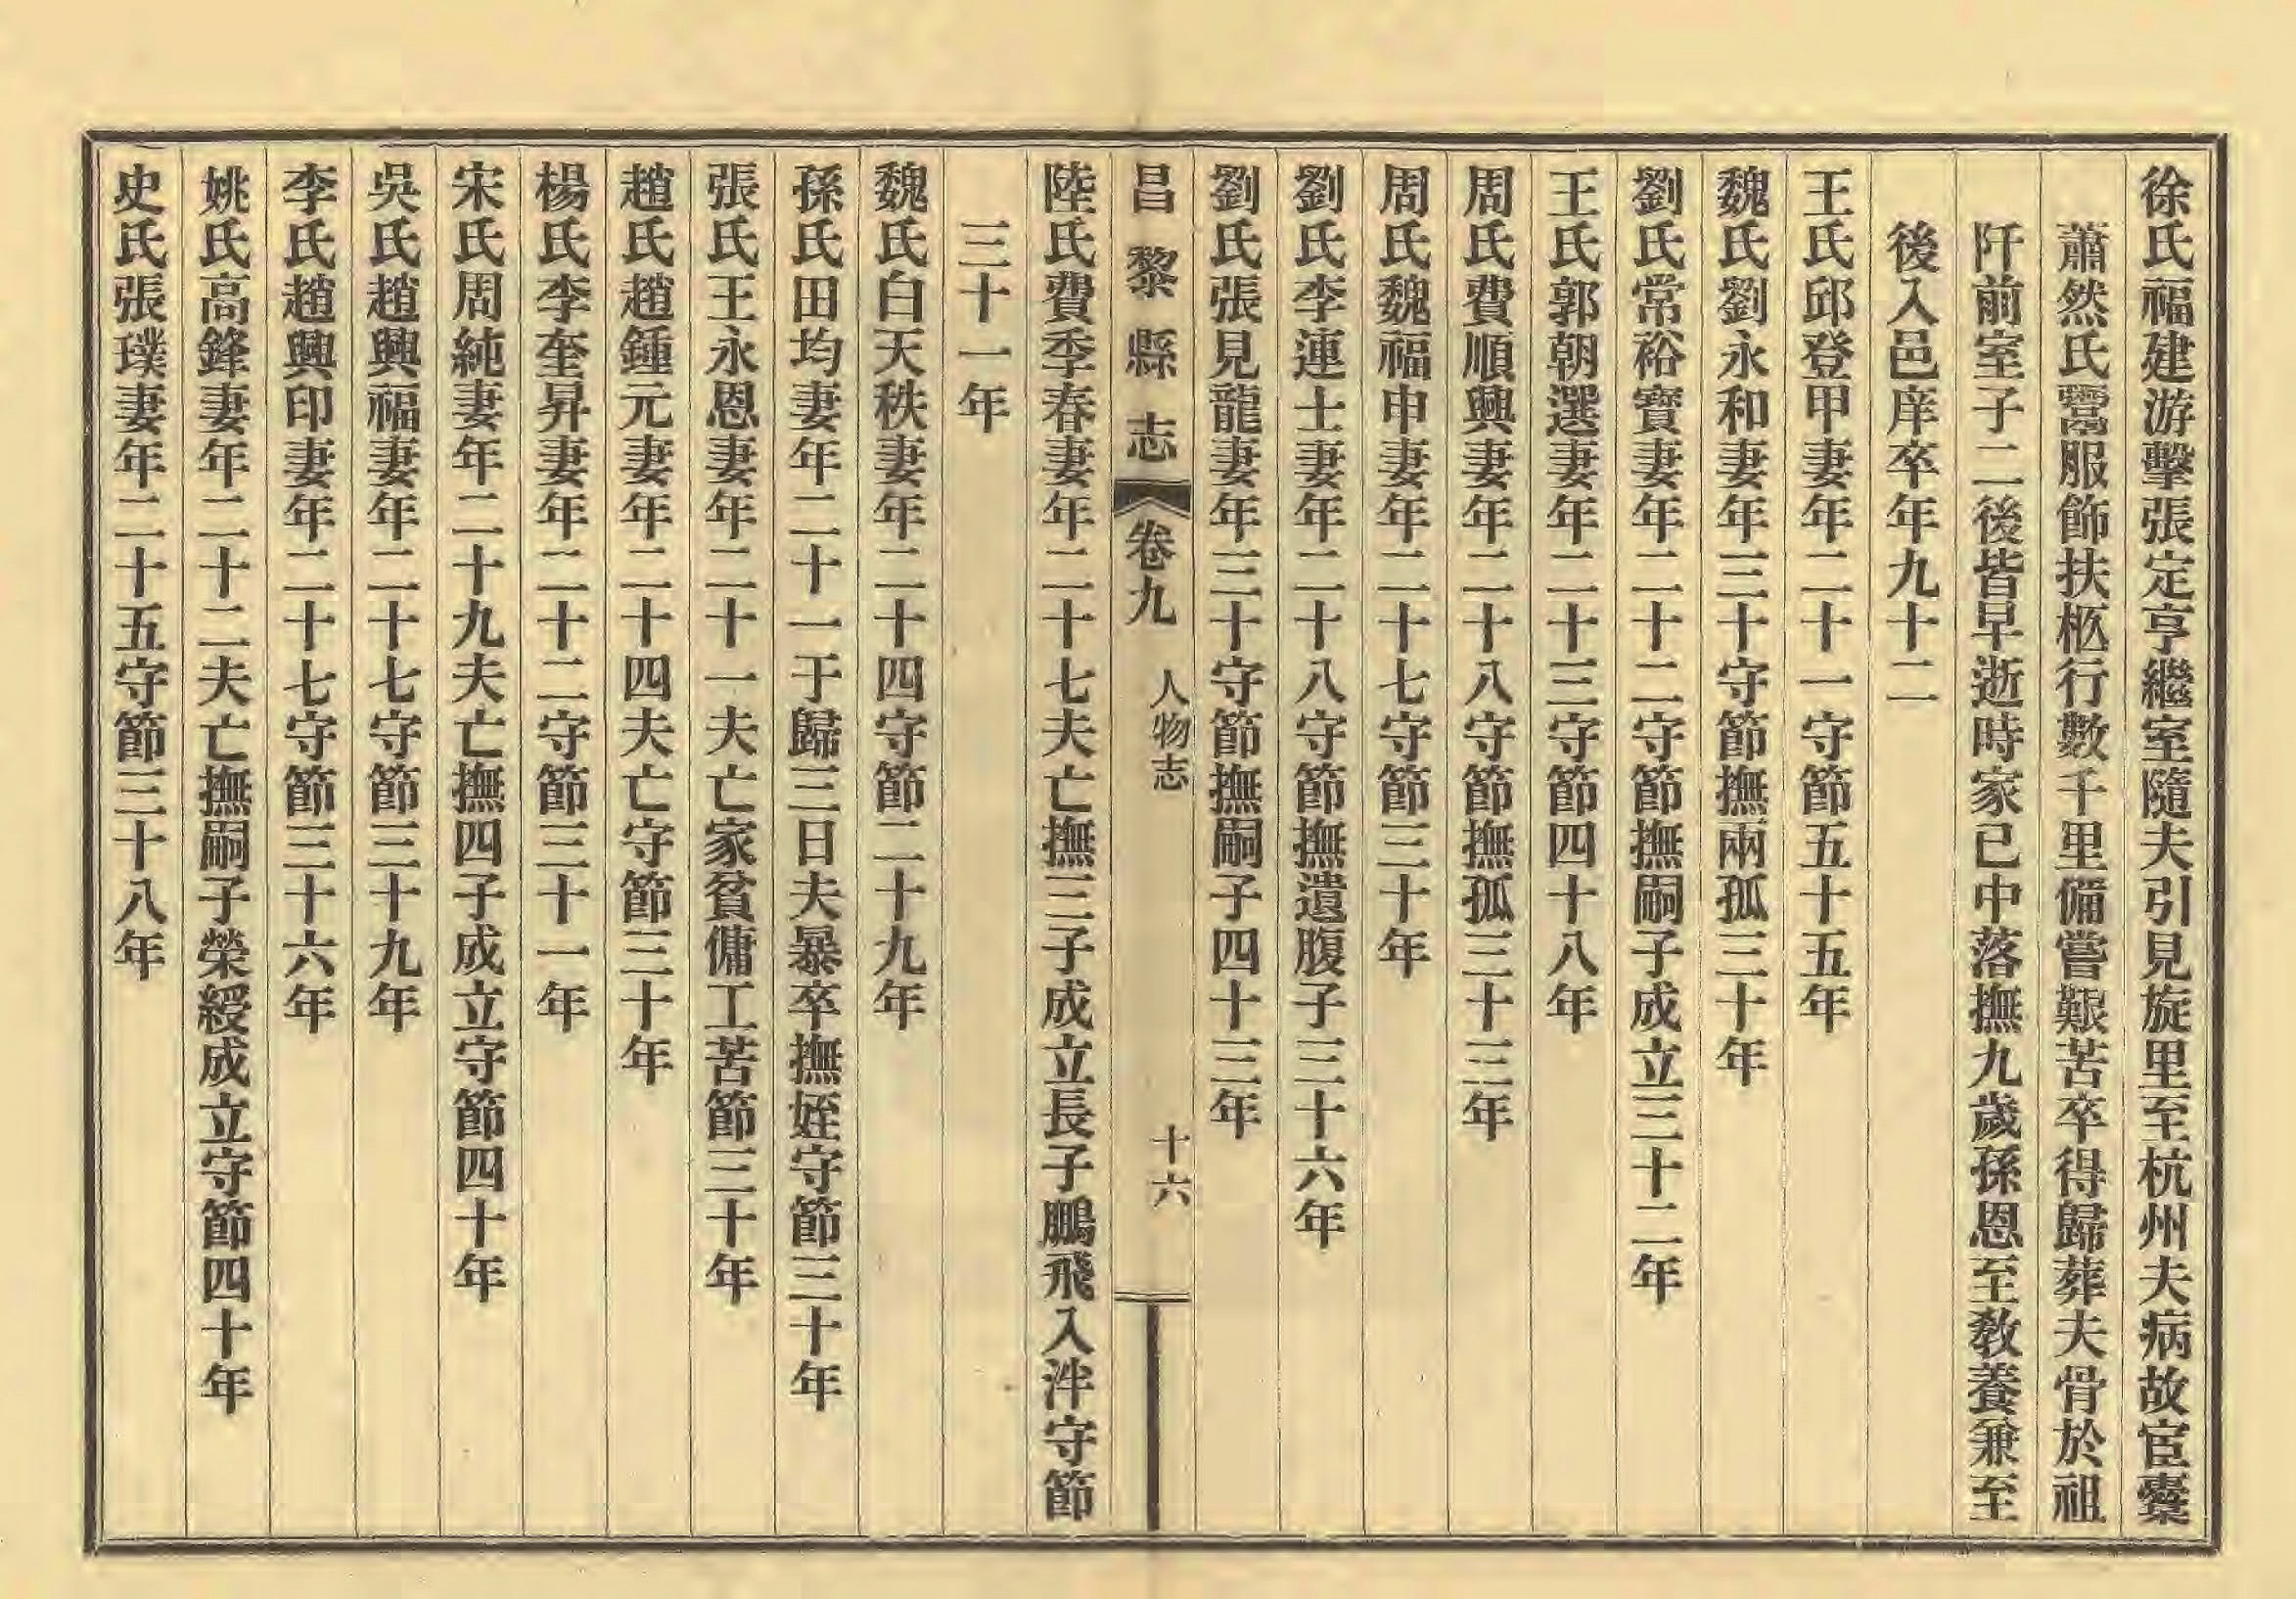 徐氏福建游擊張定亨繼室隨夫引見旋里至杭州夫病故宦囊
蕭然氏鬻服飾扶柩行數千里備嘗艱苦卒得歸葬夫骨於祖
阡前室子二後皆早逝時家已中落撫九歲孫恩至敎養兼至
後入邑庠卒年九十二
王氏邱登甲妻年二十一守節五十五年
魏氏劉永和妻年三十守節撫兩孤三十年
劉氏常裕寶妻年二十二守節撫嗣子成立三十二年
王氏郭朝選妻年二十三守節四十八年
周氏費順興妻年二十八守節撫孤三十三年
周氏魏福申妻年二十七守節三十年
劉氏李連士妻年二十八守節撫遺腹子三十六年
劉氏張見龍妻年三十守節撫嗣子四十三年
昌黎縣志 卷九 人物志 十六
陸氏費季春妻年二十七夫亡撫三子成立長子鵬飛入泮守節
三十一年
魏氏白天秩妻年二十四守節二十九年
孫氏田均妻年二十一于歸三日夫暴卒撫姪守節三十年
張氏王永恩妻年二十一夫亡家貧傭工苦節三十年
趙氏趙鍾元妻年二十四夫亡守節三十年
楊氏李奎昇妻年二十二守節三十一年
宋氏周純妻年二十九夫亡撫四子成立守節四十年
吳氏趙興福妻年二十七守節三十九年
李氏趙興印妻年二十七守節三十六年
姚氏高鋒妻年二十二夫亡撫嗣子榮綬成立守節四十年
史氏張璞妻年二十五守節三十八年